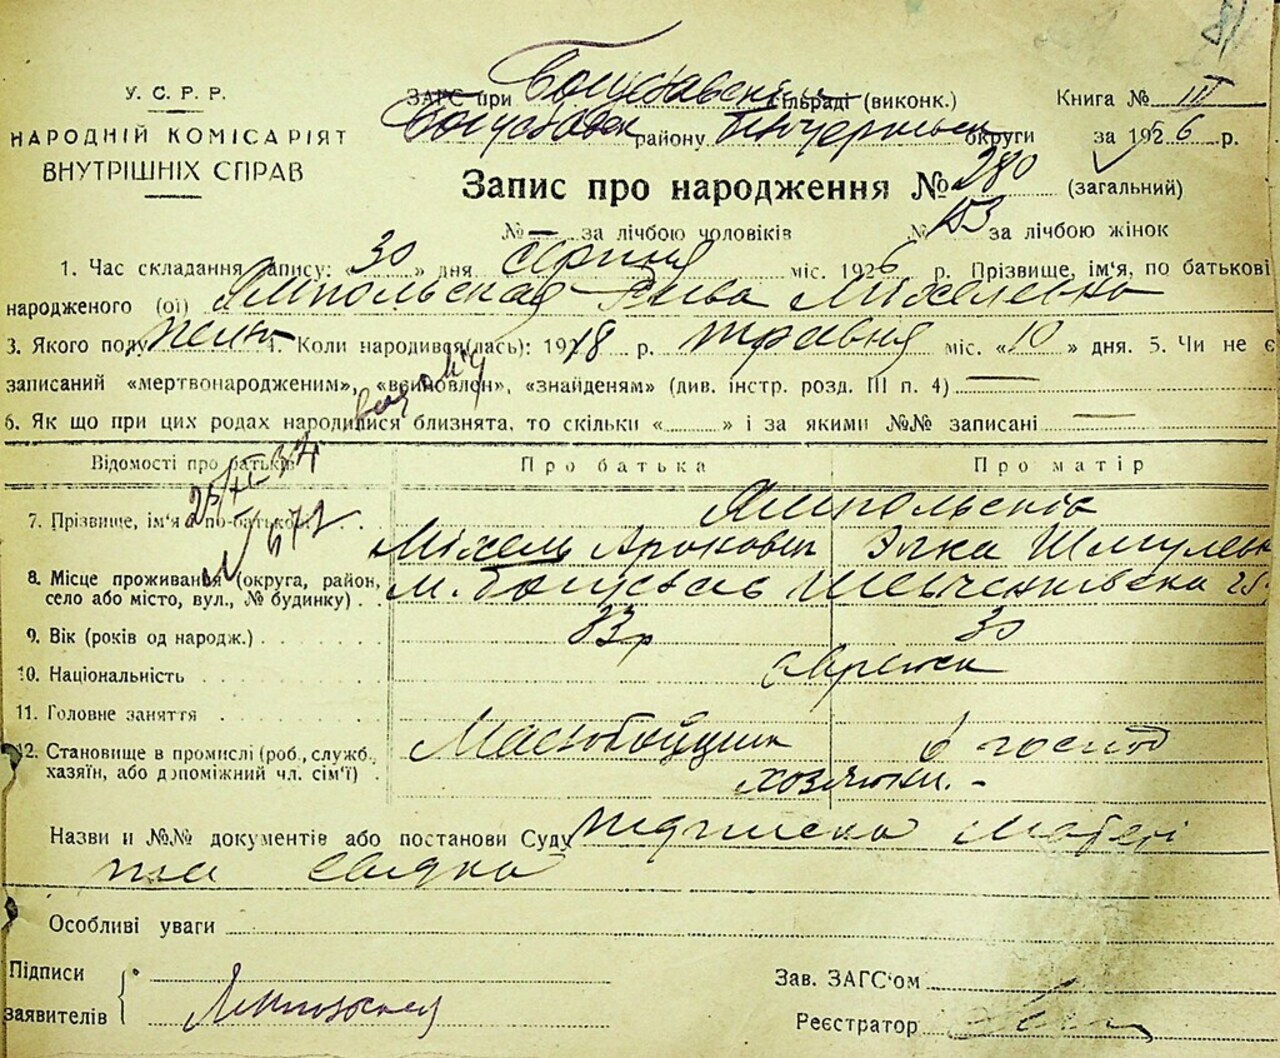 У. С. Р. Р.
НАРОДНІЙ КОМІСАРІЯТ
ВНУТРІШНІХ СПРАВ
ЗАГС при Богуславськ сільраді (виконк.) Книга № III
Богуславськ району Білоцерківськ округи за 1926 6 р.
Запис про народження № 280 (загальний)
№ — за лічбою чоловіків № 153 за лічбою жінок
1. Час складання запису: « 30 » дня серпня міс. 1926 р. Прізвище, ім'я, по батькові
народженого (ої) Ямпольская Міхелевна
3. Якого полу жіно 4. Коли народився(лась): 1918 р. травня міс. « 10 » дня. 5. Чи не є
записаний «мертвонародженим», «вимовлен», «знайденям» (див. інстр. розд. III п. 4) —
6. Як що при цих родах народилися близнята, то скільки «......» і за якими №№ записані —
Відомості про батьків Про батька Про матір
25/XI-37
№ 671
7. Прізвище, ім'я по-батькові Ямпольскіє
Міхель Аронович Элка Шмулевн
8. Місце проживання (округа, район, м. Богуслав Шевченківська 25.
село або місто, вул., № будинку)
9. Вік (років од народж.) 33р 30
10. Національність евреи
11. Головне заняття
12. Становище в промислі (роб., служб., Маслобойщик б господ
хазяїн, або допоміжний чл. сім'ї) хозяюки. -
Назви и №№ документів або постанови Суду Підписка матері
Особливі уваги
Підписи
заявителів Ямпольская
Зав. ЗАГС'ом
Реєстратор